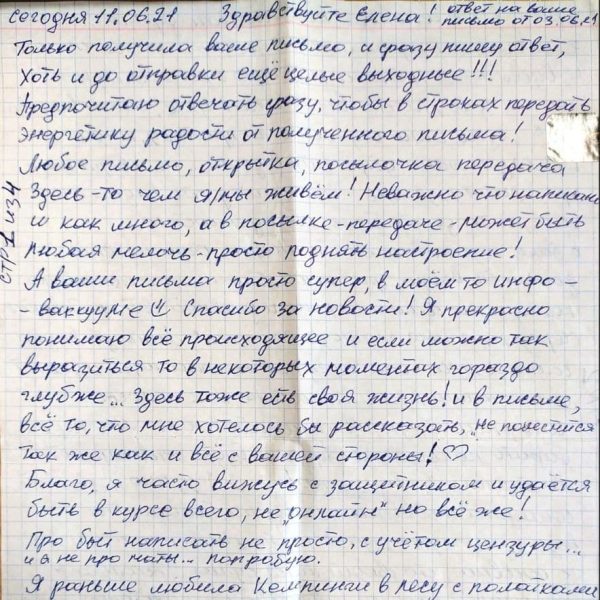 сегодня 11.06.21 Здравствуйте Елена! ответ на ваше
письмо от 03.06.21
Только получила ваше письмо, и сразу пишу ответ,
хоть и до отправки ещё целые выходные!!!
Предпочитаю отвечать сразу, чтобы в строках передать
энергетику радости от полученного письма!
Любое письмо, открытка, посылочка передача
здесь - то чем я/мы живём! Неважно что написано
и как много, а в посылке-передаче - может быть
любая мелочь - просто поднять настроение!
А ваши письма просто супер, в моём то инфо-
-вакууме Спасибо за новости! Я прекрасно
понимаю всё происходящее и если можно так
выразиться то в некоторых моментах гораздо
глубже... Здесь тоже есть своя жизнь! и в письме,
всё то, что мне хотелось бы рассказать, не поместится
так же как и всё с вашей стороны! ♡
Благо, я часто вижусь с защитником и удаётся
быть в курсе всего, не „онлайн“ но всё же!
Про быт написать не просто, с учётом цензуры...
и я не про маты... попробую.
Я раньше любила Кемпинги в лесу с палатками
стр 1 из 4